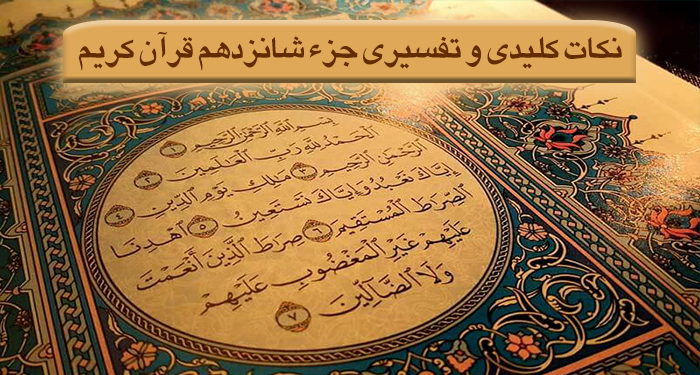 نکات کلیدی و تفسیری جزء شانزدهم قرآن کریم
بِسْمِ اللَّهِ الرَّحْمَٰنِ الرَّحِيمِ ۝١
الْحَمْدُ لِلَّهِ رَبِّ الْعَالَمِينَ ۝٢
الرَّحْمَٰنِ الرَّحِيمِ ۝٣ مَالِكِ يَوْمِ الدِّينِ ۝٤
إِيَّاكَ نَعْبُدُ وَإِيَّاكَ نَسْتَعِينُ ۝٥ اهْدِنَا
الصِّرَاطَ الْمُسْتَقِيمَ ۝٦ صِرَاطَ الَّذِينَ أَنْعَمْتَ
عَلَيْهِمْ غَيْرِ الْمَغْضُوبِ عَلَيْهِمْ
وَلَا الضَّالِّينَ ۝٧